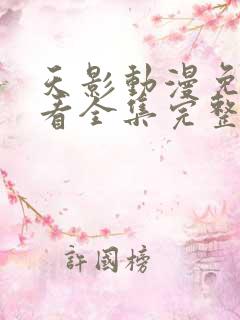 天影動漫免
看全集完整
許國榜